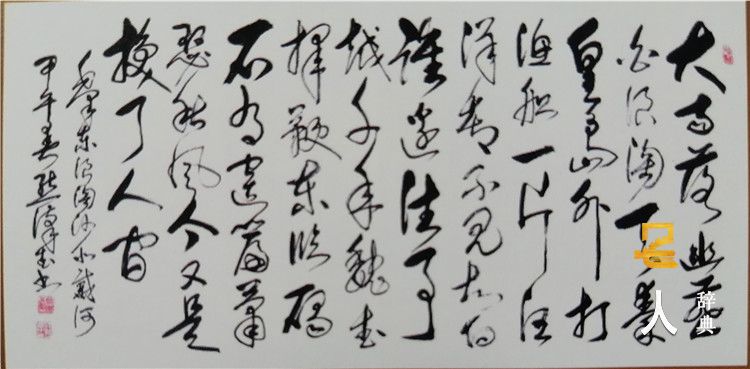 大雨落幽燕
白浪淘天秦
皇岛外打
渔船一片汪
洋都不见知向
谁边往事
越千年魏武
挥鞭东临碣
石有遗篇萧
瑟秋风今又是
换了人间
毛泽东浪淘沙北戴河
甲午春 书
人
辞典